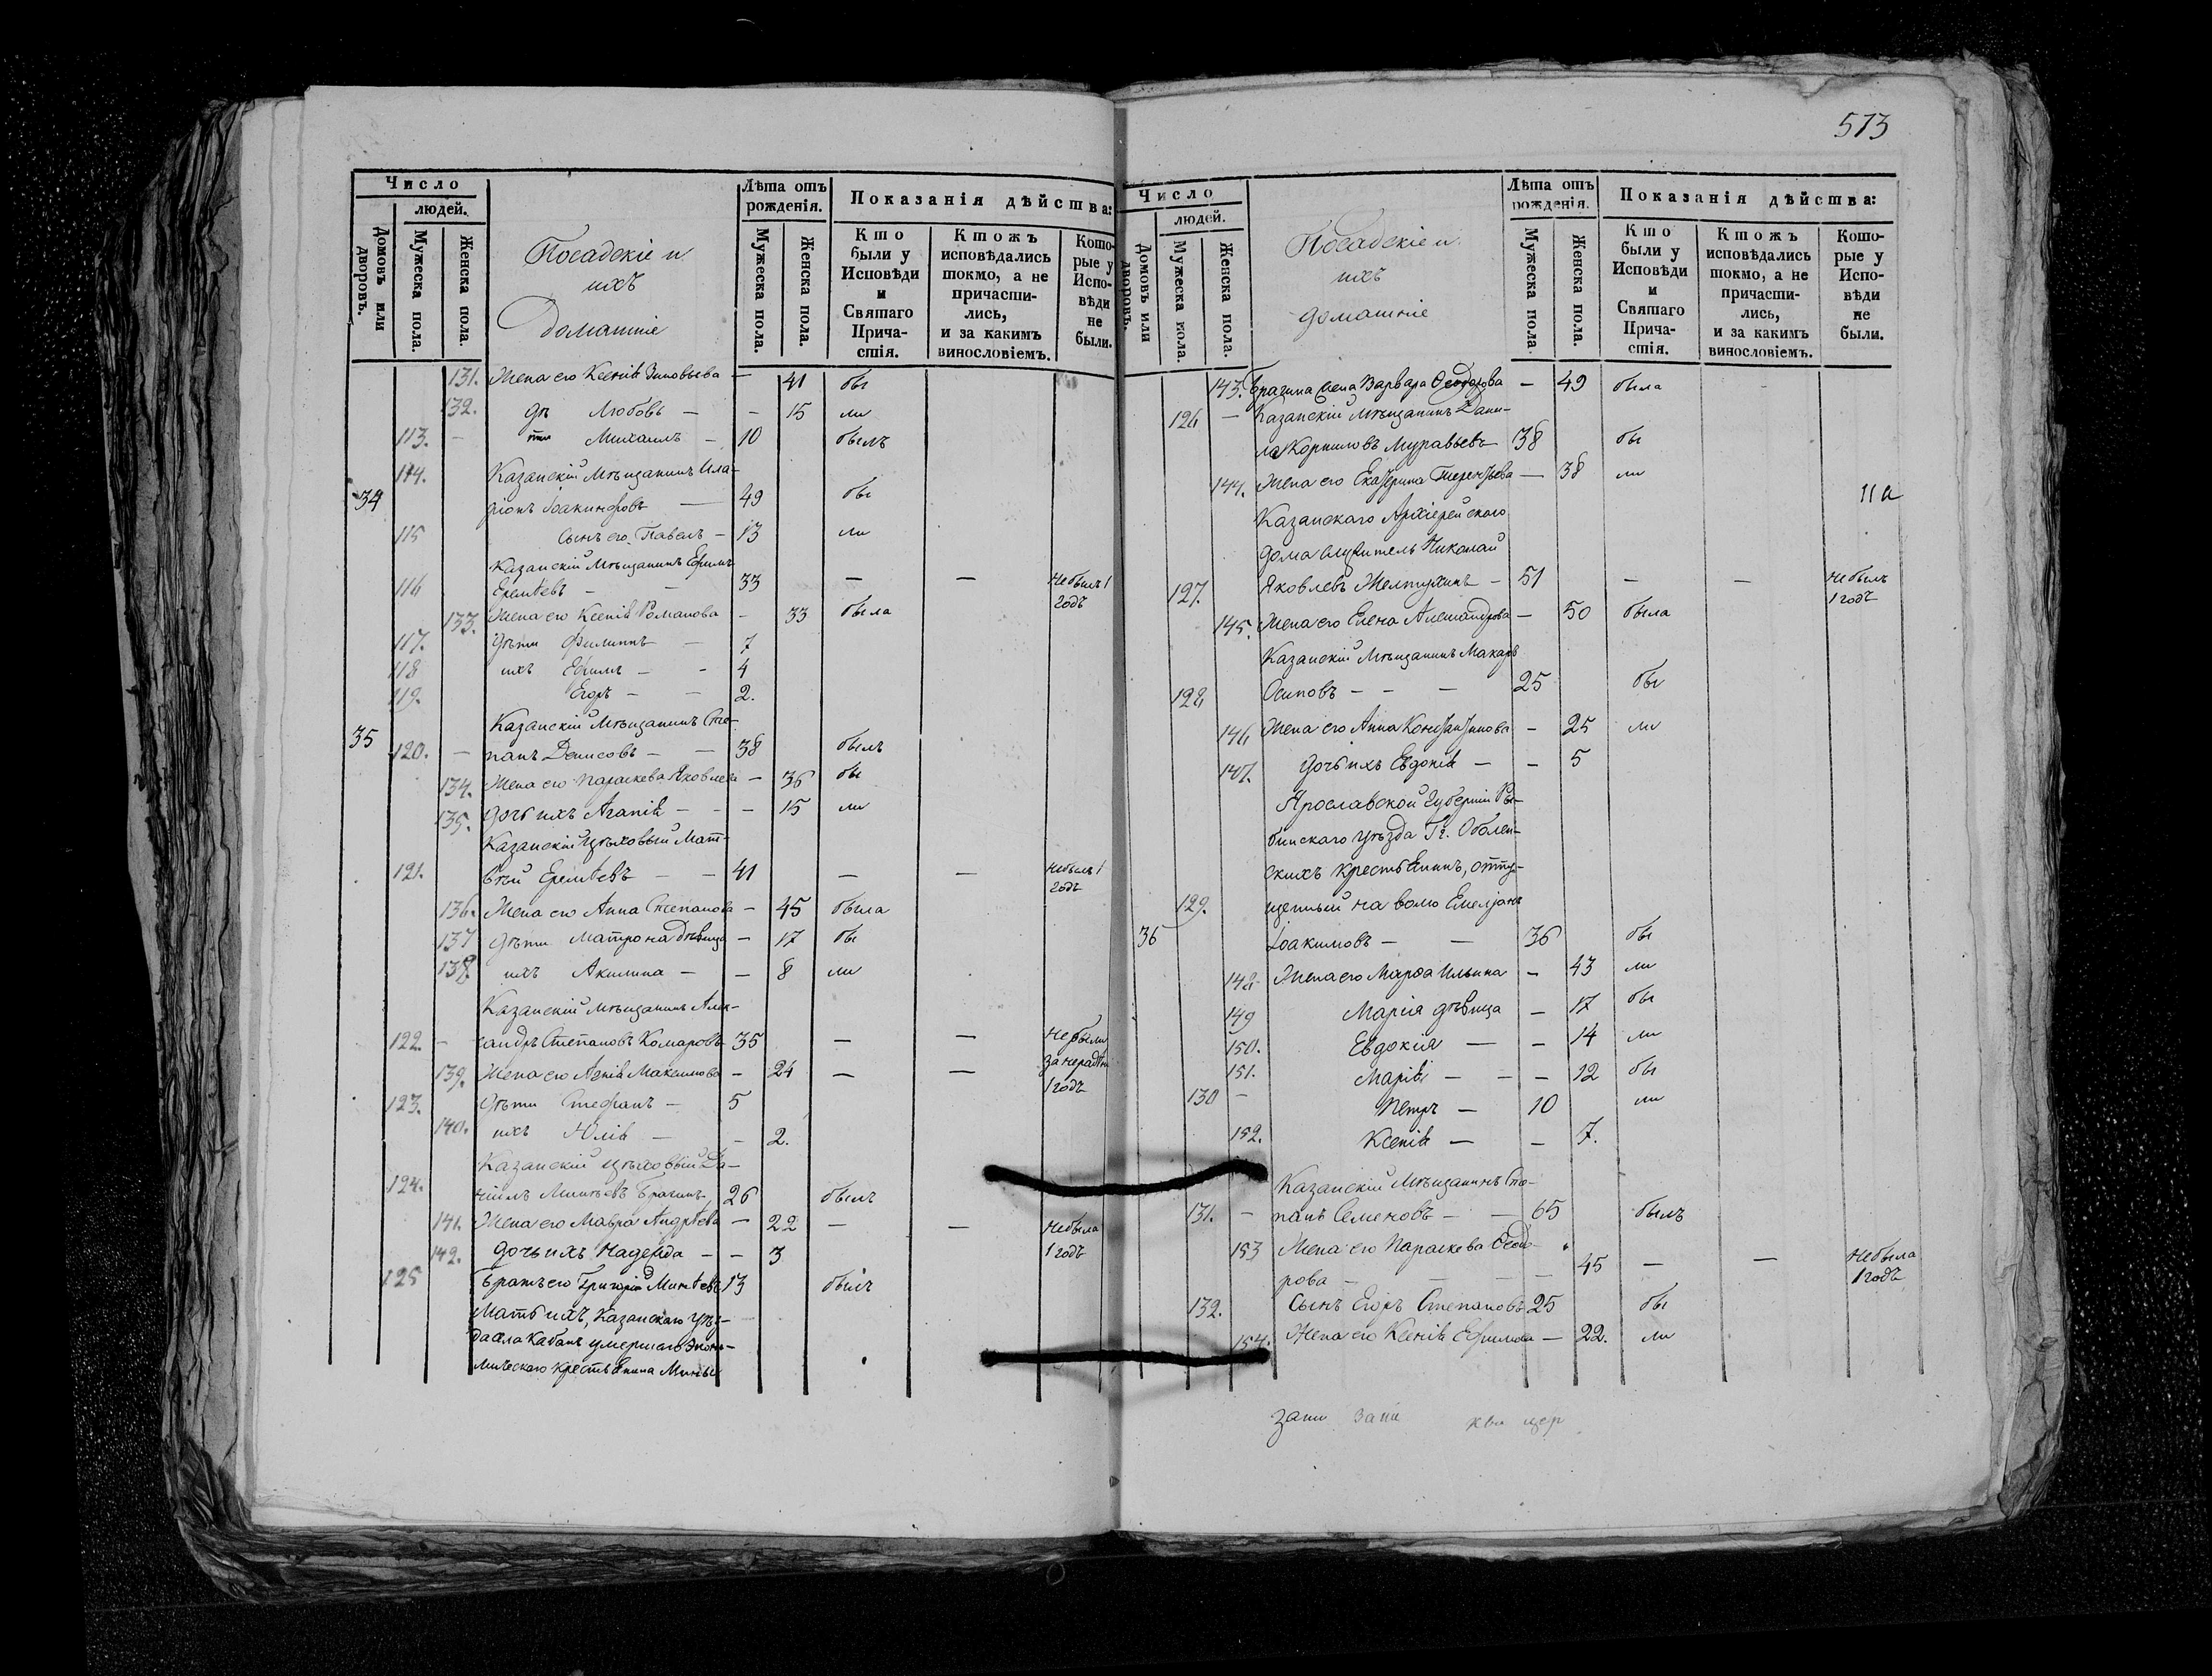 573
Число
людей.
Домовъ или дворовъ.
Мужеска пола.
Женска пола.
Посадскіе и
ихъ
домашніе
Лѣта отъ рожденія.
Мужеска пола.
Женска пола.
Показанія дѣйства:
Кто были у Исповѣди и Святаго Причастія.
Ктожъ исповѣдались токмо, а не причастились, и за какимъ винословіемъ.
Которые у Исповѣди не были.
131. Жена его Ксенія Зиновьева — 41 бы
132. дѣ Любовь — — 15 ли
113. — ти Михаилъ — 10 былъ
114. Казанскій мѣщанинъ Ила-
34 ріонъ Іоакинфовъ — 49 бы
115 Сынъ его Павелъ — 13 ли
Казанскій мѣщанинъ Ефимъ
116 Еремѣевъ — 33 — — Небылъ 1 годъ
133. Жена его Ксенія Романова — 33 была
117. Дѣти Филиппъ — 7
118 ихъ Ефимъ — — 4
119. Егоръ — — 2.
Казанскій мѣщанинъ Сте-
35 120. — панъ Денисовъ — — 38 былъ
134. Жена его Параскева Яковлева — 36 бы
135. Дочь ихъ Агапія — — 15 ли
Казанскій цѣховый Мат-
121. вѣй Еремѣевъ — — 41 — — Небылъ 1 годъ
136. Жена его Анна Степанова — 45 была
137 Дѣти Матрона дѣвица — 17 бы
138. ихъ Акилина — — 8 ли
Казанскій мѣщанинъ Алек-
122. — сандръ Степановъ Комаровъ 35 — — Небыли
139. Жена его Агнія Максимова — 24 — — 1 годъ
123. Дѣти Стефанъ — 5
140. ихъ Юлія — — 2.
Казанскій цѣховый Да-
124. ніилъ Минѣевъ Брагинъ 26 былъ
141. Жена его Мавра Андрѣева — 22 — — Небыла
142. Дочь ихъ Надежда — — 3 1 годъ
125 Братъ его Григорій Минѣевъ 13 былъ
Мать ихъ, Казанскаго уѣз-
да села Кабанъ умершаго эконо-
мическаго крестьянина Минѣя
Число
людей.
Домовъ или дворовъ.
Мужеска пола.
Женска пола.
Посадскіе и
ихъ
домашніе
Лѣта отъ рожденія.
Мужеска пола.
Женска пола.
Показанія дѣйства:
Кто были у Исповѣди и Святаго Причастія.
Ктожъ исповѣдались токмо, а не причастились, и за какимъ винословіемъ.
Которые у Исповѣди не были.
143. Брагина жена Варвара Ѳеодорова — 49 была
126 — Казанскій мѣщанинъ Дани-
ла Корниловъ Муравьевъ 38 бы
144. Жена его Екатерина Терентьева — 38 ли
Казанскаго Архіерейскаго
дома служитель Николай
127. Яковлевъ Желтухинъ — 51 — — небылъ 1 годъ
145. Жена его Елена Александрова — 50 была
Казанскій мѣщанинъ Макаръ
128 Осиповъ — — — 25 бы
146 Жена его Анна Константинова — 25 ли
147. Дочь ихъ Евдокія — — 5
Ярославской Губерніи Ры-
бинскаго уѣзда Гг. Оболен-
скихъ крестьянинъ, отпу-
129. щенный на волю Емельянъ
36 Іоакимовъ — — 36 бы
148 Жена его Марѳа Ильина — 43 ли
149 Марія дѣвица — 17 бы
150. Евдокія — — 14 ли
151. Марія — — — 12 бы
130 — Петръ — 10 ли
152. Ксенія — — 7.
Казанскій мѣщанинъ Сте-
131. — панъ Семеновъ — — 65 былъ
153 Жена его Параскева Ѳеодо-
рова — — — — 45 — — Небыла 1 годъ
132. Сынъ Егоръ Степановъ 25 бы
154. Жена его Ксенія Ефимова — 22. ли